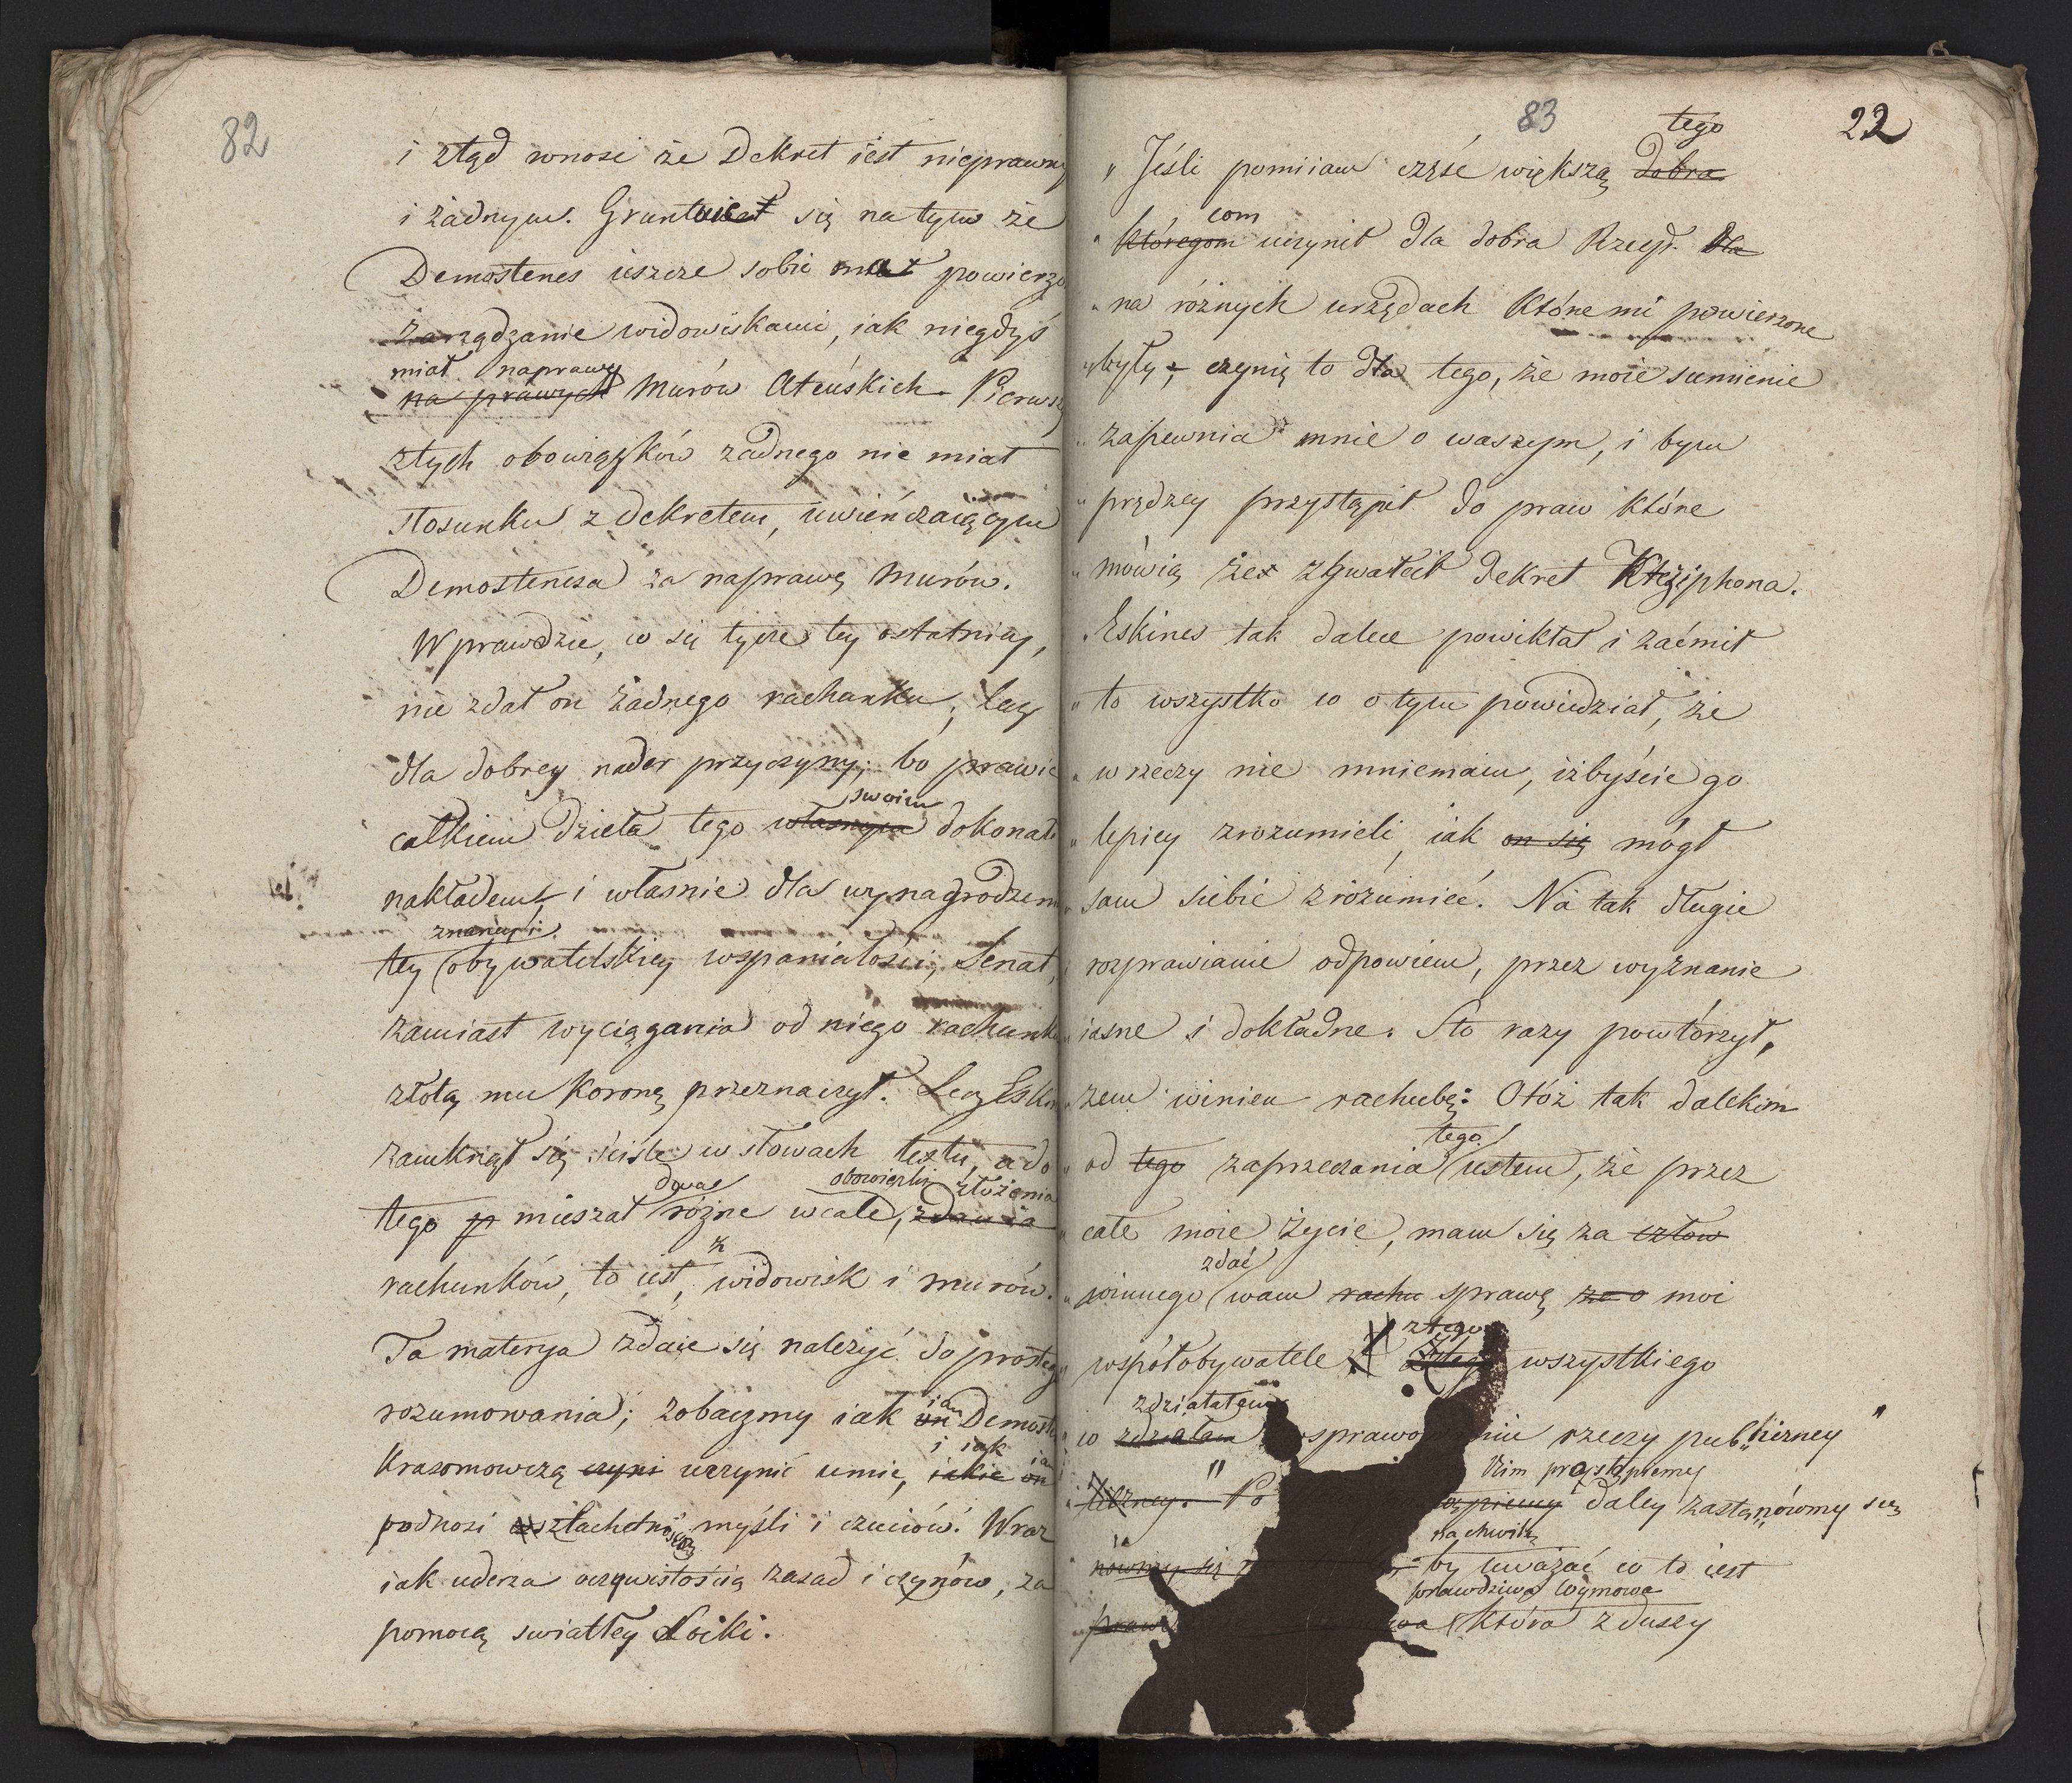 82
i ztąd wnosi że Dekret iest nieprawny
i żadnym. Gruntuiet się na tym że
Demostenes ieszcze sobie miał powierzo
zarządzanie widowiskami, iak niegdyś
miał naprawy
na prawych Murów Ateńskich. Pierwszy
ztych obowiązków żadnego nie miał
stosunku z dekretem, uwieńczaiącym
Demostenesa za naprawę Murów.
Wprawdzie, co się tycze tey ostatniey,
nie zdał on żadnego rachunku, lecz
dla dobrey nader przyczyny; bo prawie
swoim
całkiem dzieła tego własnym dokonał
nakładem, i własnie dla wynagrodzeni
znaney i
tey obywatelskiey wspaniałości, Senat,
zamiast wyciągania od niego rachunk
złotą mu Koronę przeznaczył. Lecz Eskin
zamknął się ściśle w słowach textu, a do
dwa obowiązki złożenia
tego p mieszał różne wcale, zdania
z
rachunków, to iest, widowisk i murów.
Ta materya zdaie się należyć do prostego
rozumowania; zobaczmy iak on ią Demost
i iak ią
Krasomowczą czyni uczynić umie, iakie on
podnosi szlachetnością myśli i czuciów. Wraz
iak uderza oczywistością zasad i czynów, za
pomocą swiatłey Loiki.
83 22
tego
„ Jeśli pomiiam część większą dobra
com
„ któregom uczynił dla dobra Rzeczp. dla
„ na różnych urzędach które mi powierzone
„ były, czynię to dla tego, że moie sumienie
„ zapewnia mnie o waszym, i bym
„ prędzey przystąpił do praw które
„ mówią że zgwałcił dekret Ktezyphona.
„ Eskines tak dalece powikłał i zaćmił
„ to wszystko co o tym powiedział, że
„ w rzeczy nie mniemam, iżbyście go
„ lepiey zrozumieli, iak on się mógł
„ sam siebie zrozumieć. Na tak długie
„ rozprawianie odpowiem, przez wyznanie
„ iasne i dokładne. Sto razy powtórzył,
„ żem winien rachubę: Otóż tak dalekim
tego
„ od tego zaprzeczania iestem, że przez
„ całe moie życie, mam się za człow
zdać
„ winnego wam rachu sprawę ze o moi
ztego
„ współobywatele wszystkiego
zdziałałem
„ co zdziałam sprawo niu rzeczy publiczney"
Nim przystąpiemy
liczney." Po ąpiemy daley zastanówmy się
na chwilę
nówmy się by uważać co to iest
prawdziwa Wymowa
praw wa która z duszy